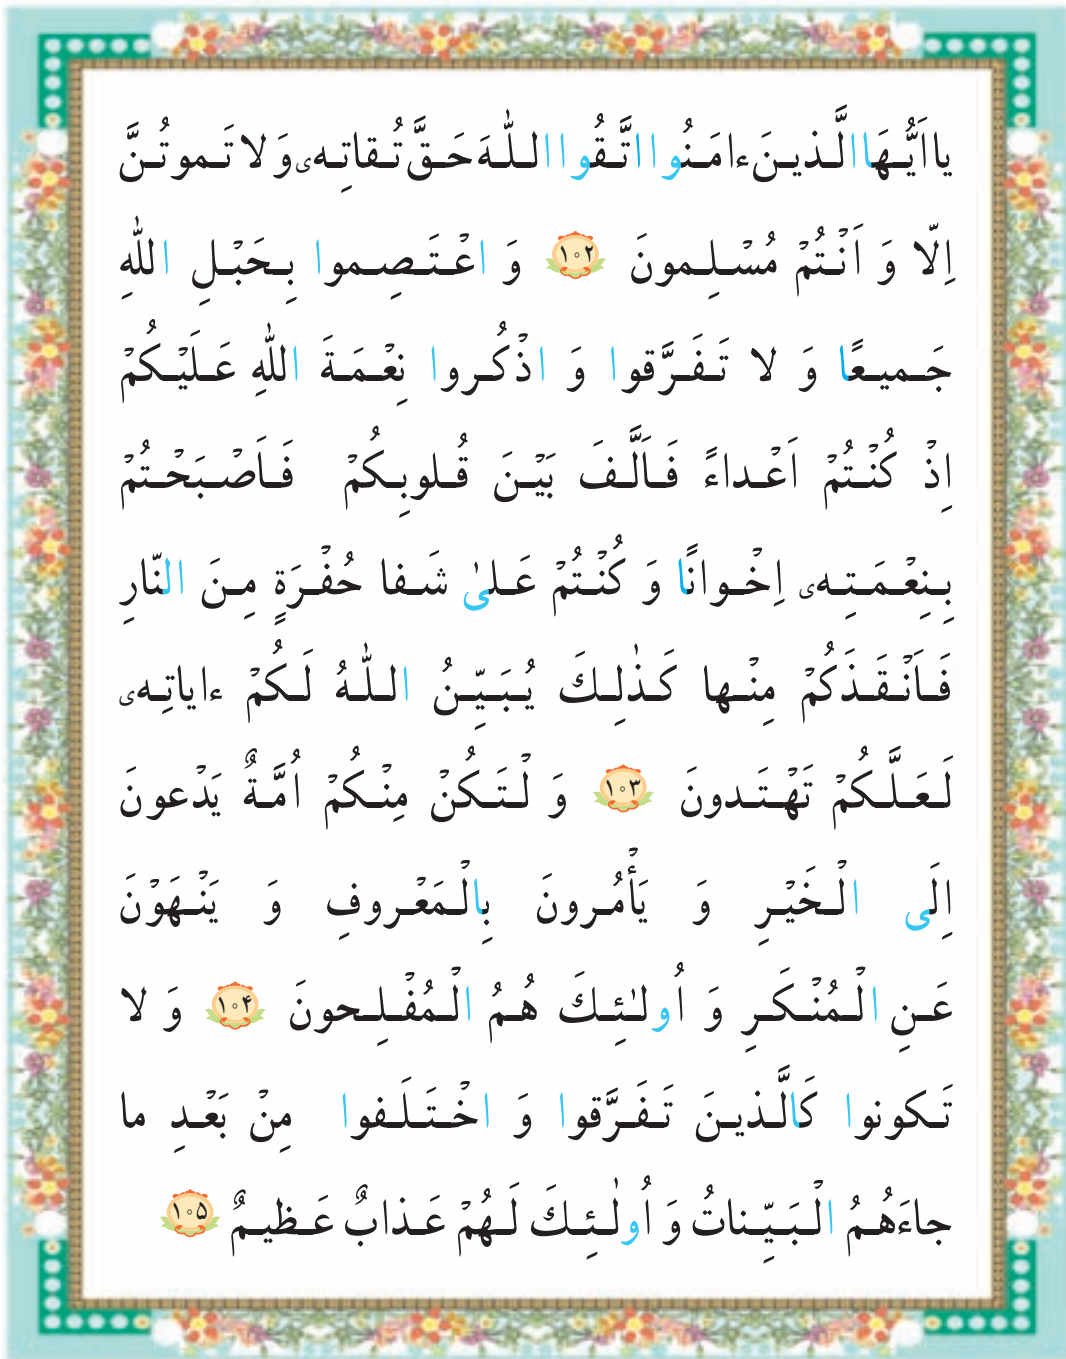 يااَيُّهَا الَّذينَ ءامَنُوا اتَّقُوا اللّٰهَ حَقَّ تُقاتِهٖ وَ لا تَموتُنَّ
اِلّا وَ اَنْتُمْ مُسْلِمونَ ﴿۱۰۲﴾ وَ اعْتَصِموا بِحَبْلِ اللّٰهِ
جَميعًا وَ لا تَفَرَّقوا وَ اذْكُروا نِعْمَةَ اللّٰهِ عَلَيْكُمْ
اِذْ كُنْتُمْ اَعْداءً فَاَلَّفَ بَيْنَ قُلوبِكُمْ فَاَصْبَحْتُمْ
بِنِعْمَتِهٖ اِخْوانًا وَ كُنْتُمْ عَلىٰ شَفا حُفْرَةٍ مِنَ النّارِ
فَاَنْقَذَكُمْ مِنْها كَذٰلِكَ يُبَيِّنُ اللّٰهُ لَكُمْ ءاياتِهٖ
لَعَلَّكُمْ تَهْتَدونَ ﴿۱۰۳﴾ وَ لْتَكُنْ مِنْكُمْ اُمَّةٌ يَدْعونَ
اِلَى الْخَيْرِ وَ يَأْمُرونَ بِالْمَعْروفِ وَ يَنْهَوْنَ
عَنِ الْمُنْكَرِ وَ اُولٰئِكَ هُمُ الْمُفْلِحونَ ﴿۱۰۴﴾ وَ لا
تَكونوا كَالَّذينَ تَفَرَّقوا وَ اخْتَلَفوا مِنْ بَعْدِ ما
جاءَهُمُ الْبَيِّناتُ وَ اُولٰئِكَ لَهُمْ عَذابٌ عَظيمٌ ﴿۱۰۵﴾